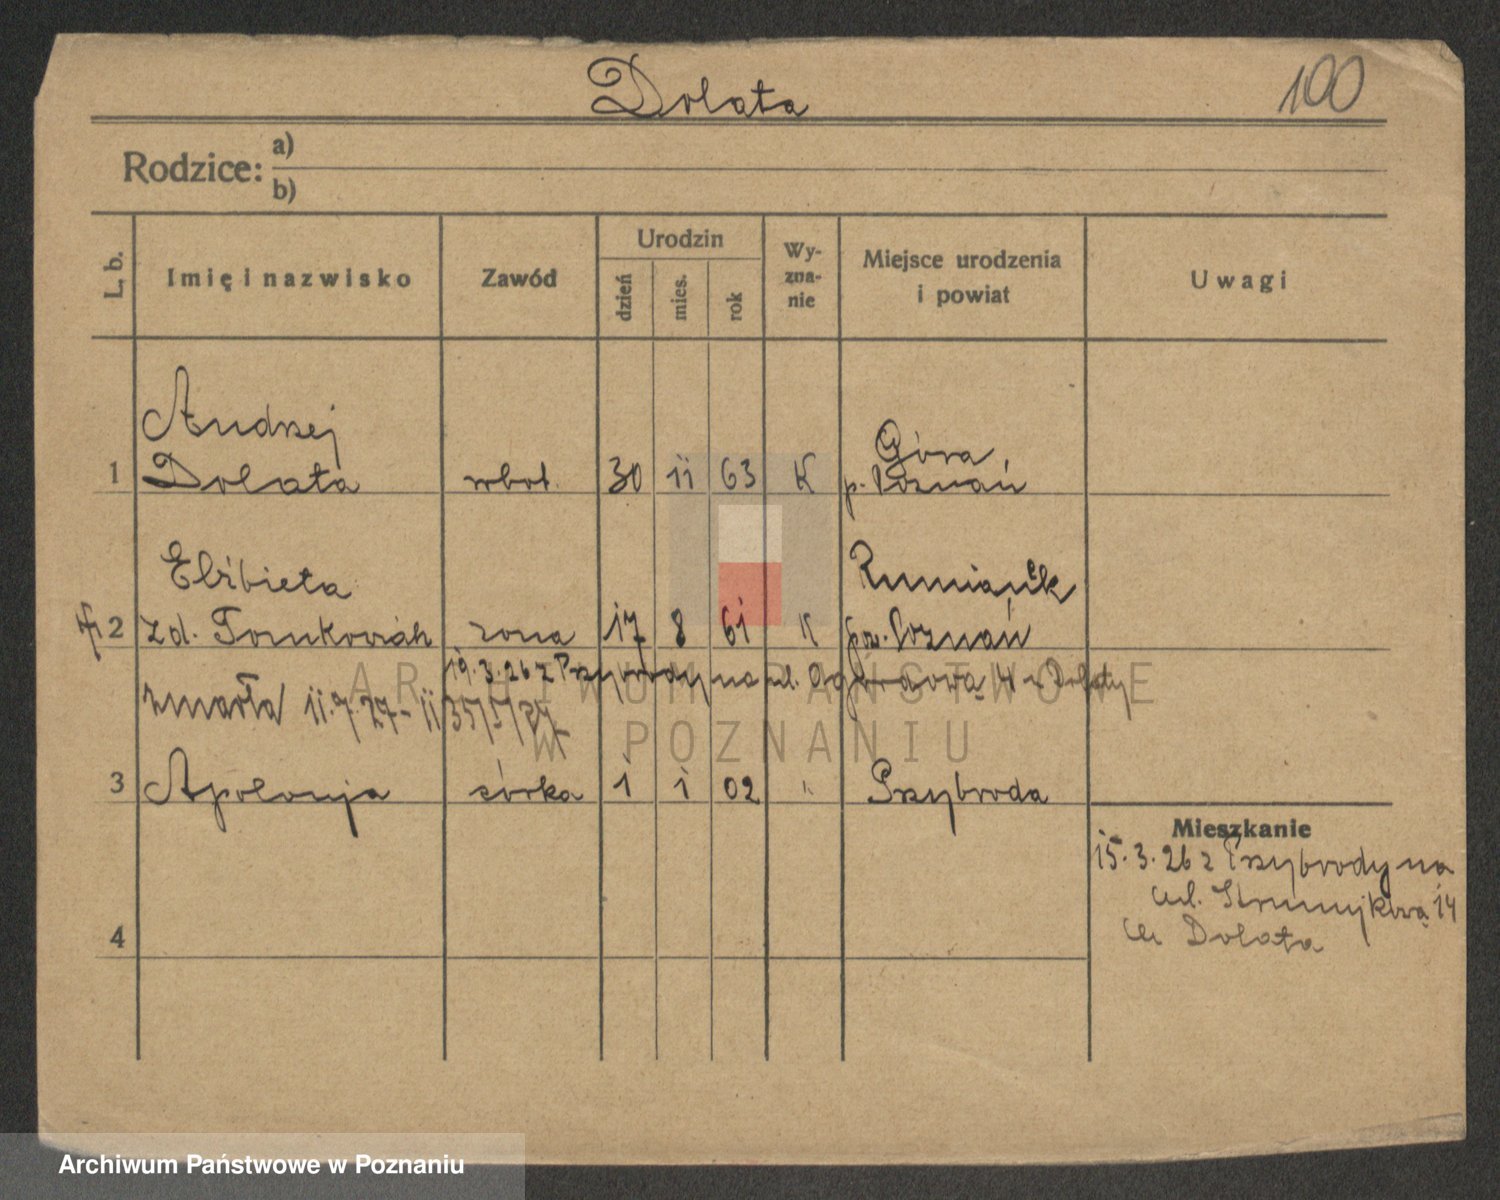 Dolata
100
Rodzice: a)
b)
L. b.
Imię i nazwisko
Zawód
Urodzin
dzień
mies.
rok
Wy-
zna-
nie
Miejsce urodzenia
i powiat
Uwagi
Andrzej
Góra,
1 Dolata robot. 30 11 63 K p. Poznań
Elżbieta
2 zd. żona 17 8 61 K Poznań
19.3.26 z Przybrody na ul. 4 u Dolaty
zmarła 11.7.27-
3 Apolonja córka 1 1 02 " Przybroda
Mieszkanie
15.3.26 z Przybrody na
ul. Strumykową 14
u Dolata
4
ARCHIWUM PAŃSTWOWE
W POZNANIU
Archiwum Państwowe w Poznaniu